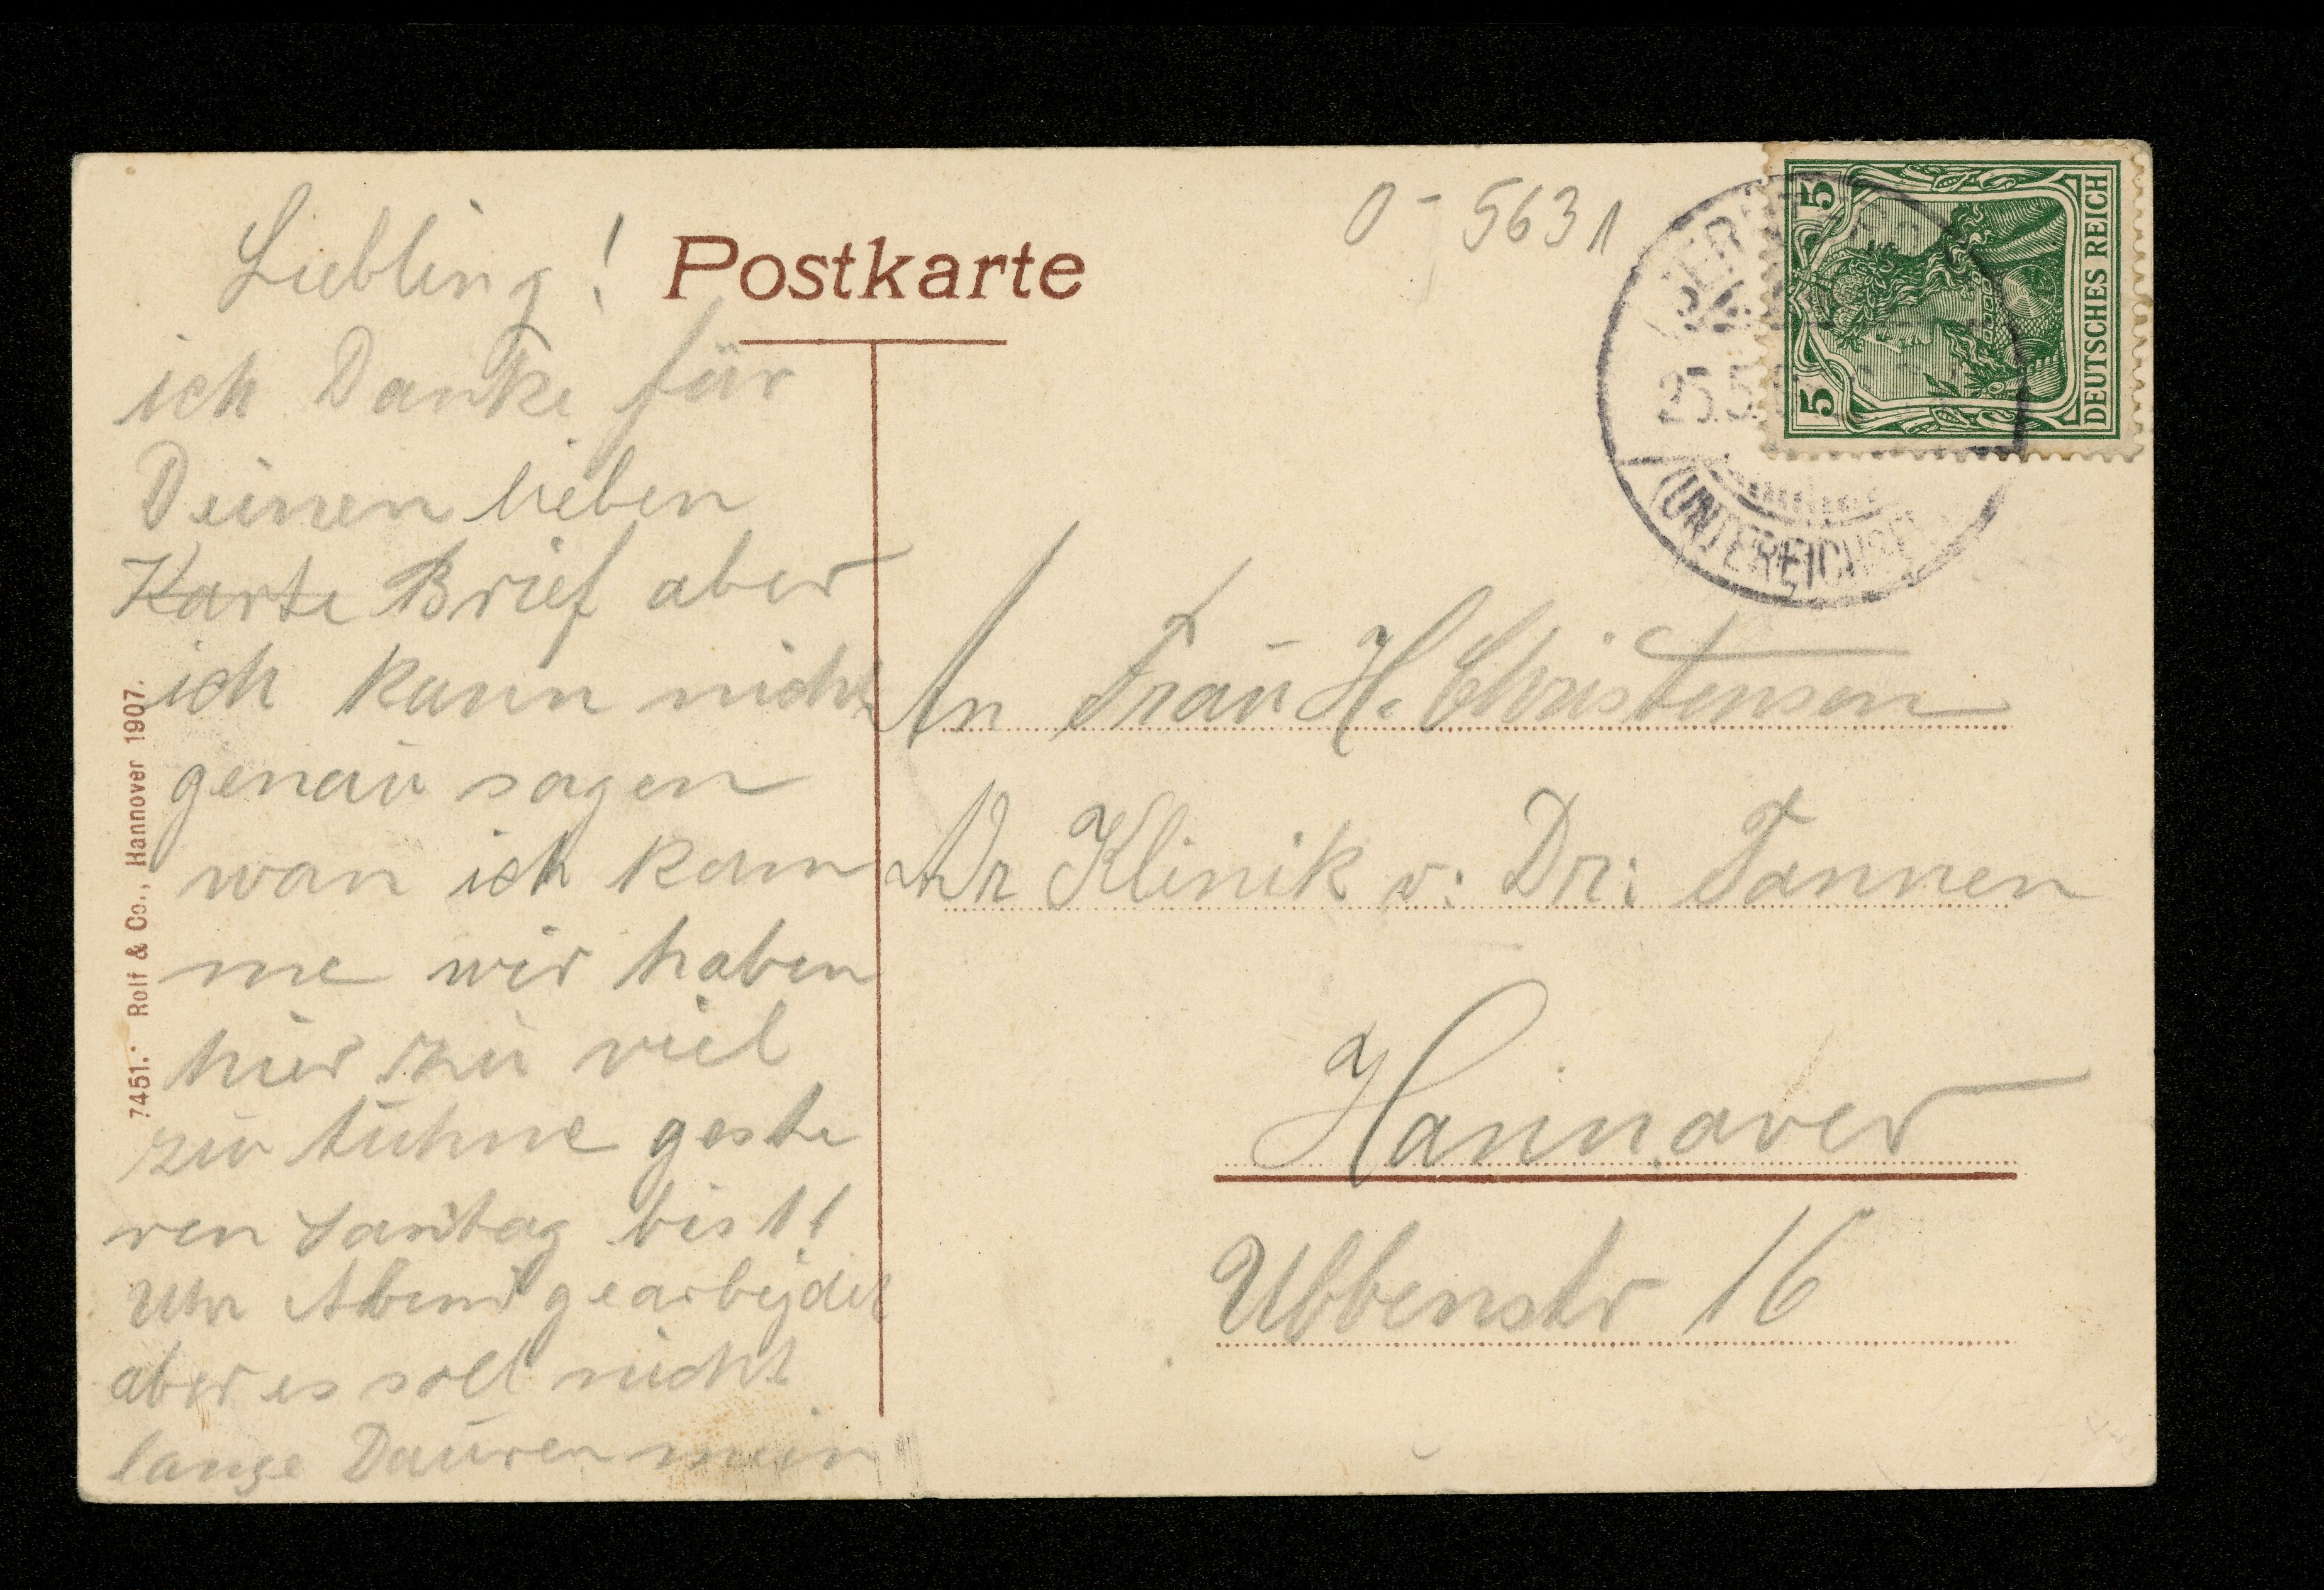 Liebling!
ich Danke für
Deinen lieben
Karte Brief aber
ich kann nicht
genau sagen
wan ich kom
me wir haben
hier zu viel
zu tuhne geste
ren Sontag bis 11
Uhr Abend gearbejdet
aber es soll nicht
lange Dauren mein
Postkarte
7451. Rolf & Co., Hannover 1907.
0 - 5631
5 5
DEUTSCHES REICH
25.5
(UNTEREICHSF
An Frau H. Christensen
Klinik v: Dr: Tannen
Hannover
Ubbenstr 16